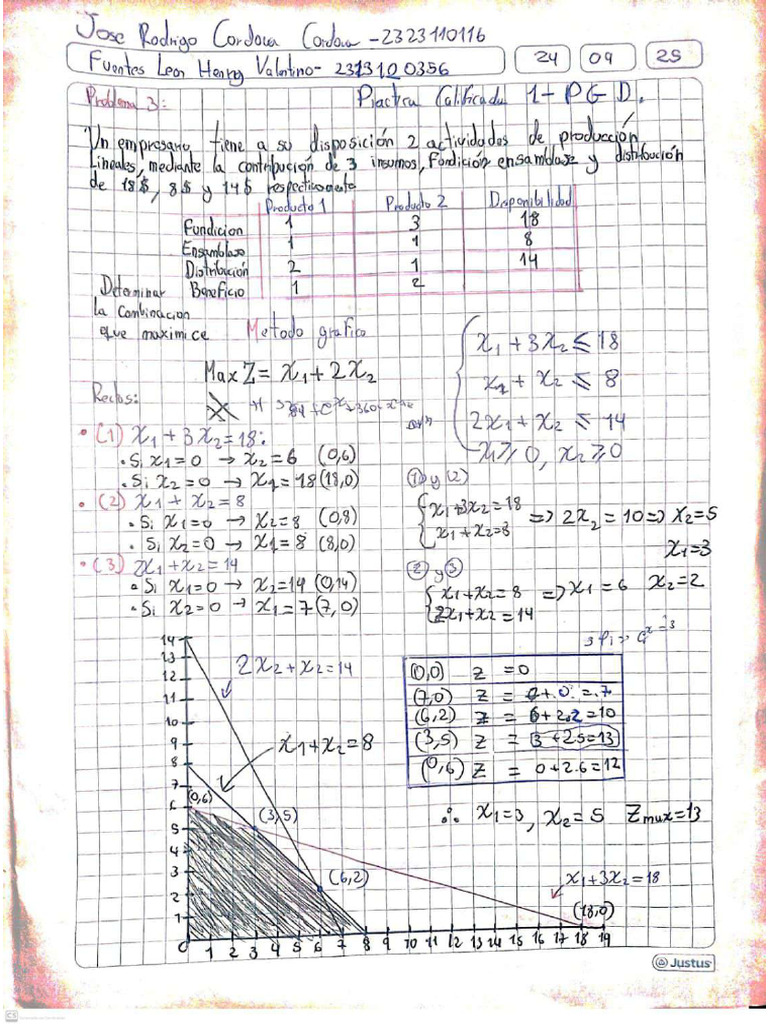 Jose Rodrigo Cordova Cordova - 2323110116
Fuentes Leon Henry Valentino - 2313100356
24 09 25
Problema 3:
Practica Calificada 1 - PGD.
Un empresario tiene a su disposición 2 actividades de producción
Lineales, mediante la contribución de 3 insumos, fondición ensamblaze y distribución
de 18$, 8$ y 14$ respectivamente
Producto 1 Producto 2 Disponibilidad
Fundicion 1 3 18
Ensamblaze 1 1 8
Distribución 2 1 14
Beneficio 1 2
Determinar
la combinacion
que maximice
Metodo grafico
Max Z = x1 + 2x2
x1 + 3x2 ≤ 18
x1 + x2 ≤ 8
2x1 + x2 ≤ 14
x1 ≥ 0, x2 ≥ 0
Rectos:
• (1) x1 + 3x2 = 18:
• Si x1 = 0 → x2 = 6 (0,6)
• Si x2 = 0 → x1 = 18 (18,0)
• (2) x1 + x2 = 8
• Si x1 = 0 → x2 = 8 (0,8)
• Si x2 = 0 → x1 = 8 (8,0)
• (3) 2x1 + x2 = 14
• Si x1 = 0 → x2 = 14 (0,14)
• Si x2 = 0 → x1 = 7 (7,0)
① y (2)
x1 + 3x2 = 18
x1 + x2 = 8
=> 2x2 = 10 => x2 = 5
x1 = 3
② y ③
x1 + x2 = 8
2x1 + x2 = 14
=> x1 = 6 x2 = 2
(0,0) Z = 0
(7,0) Z = 7 + 0 = 7
(6,2) Z = 6 + 2.2 = 10
(3,5) Z = 3 + 2.5 = 13
(0,6) Z = 0 + 2.6 = 12
∴ x1 = 3, x2 = 5 Zmax = 13
2x2 + x2 = 14
x1 + x2 = 8
x1 + 3x2 = 18
(0,6)
(3,5)
(6,2)
(18,0)
14
13
12
11
10
9
8
7
6
5
4
3
2
1
0 1 2 3 4 5 6 7 8 9 10 11 12 13 14 15 16 17 18 19
Justus
CS